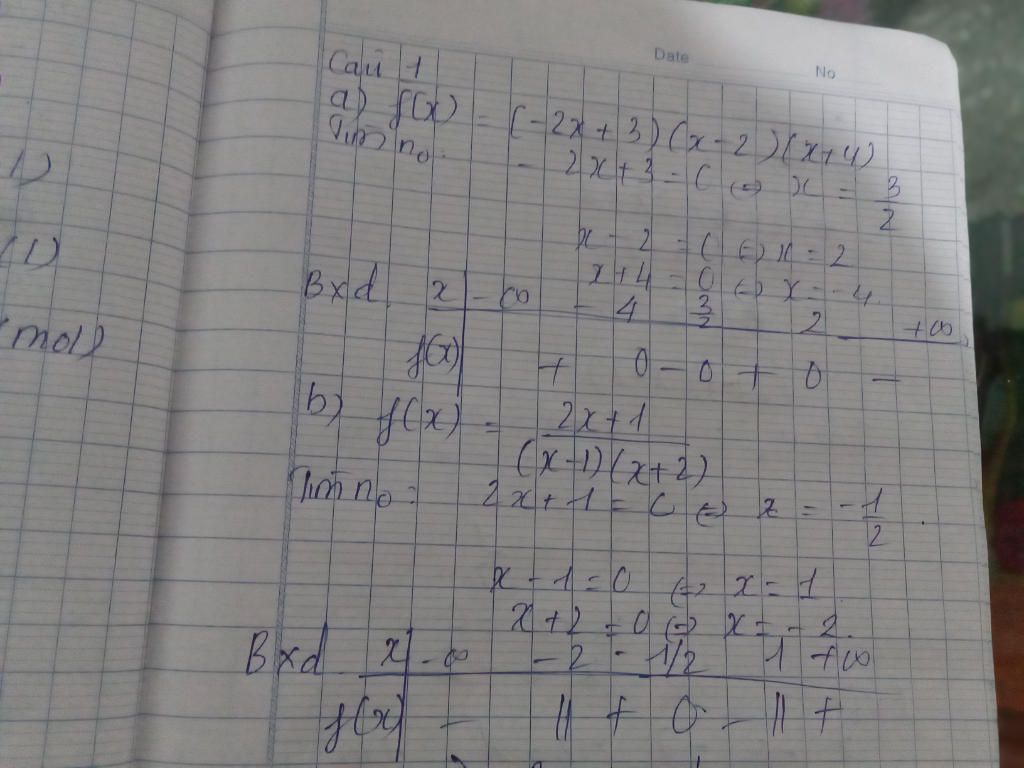 Date
No
Câu 1
a) f(x) = (-2x+3)(x-2)(x+4)
Tìm n₀: -2x+3=0 ⇔ x = 3/2
x-2=0 ⇔ x=2
x+4=0 ⇔ x=-4.
Bxd x -∞ -4 3/2 2 +∞
f(x) + 0 - 0 + 0 -
b) f(x) = 2x+1 / (x-1)(x+2)
Tìm n₀: 2x+1=0 ⇔ x = -1/2.
x-1=0 ⇔ x=1
x+2=0 ⇔ x=-2.
Bxd x -∞ -2 -1/2 1 +∞
f(x) - || + 0 - || +
1)
(1)
mol)